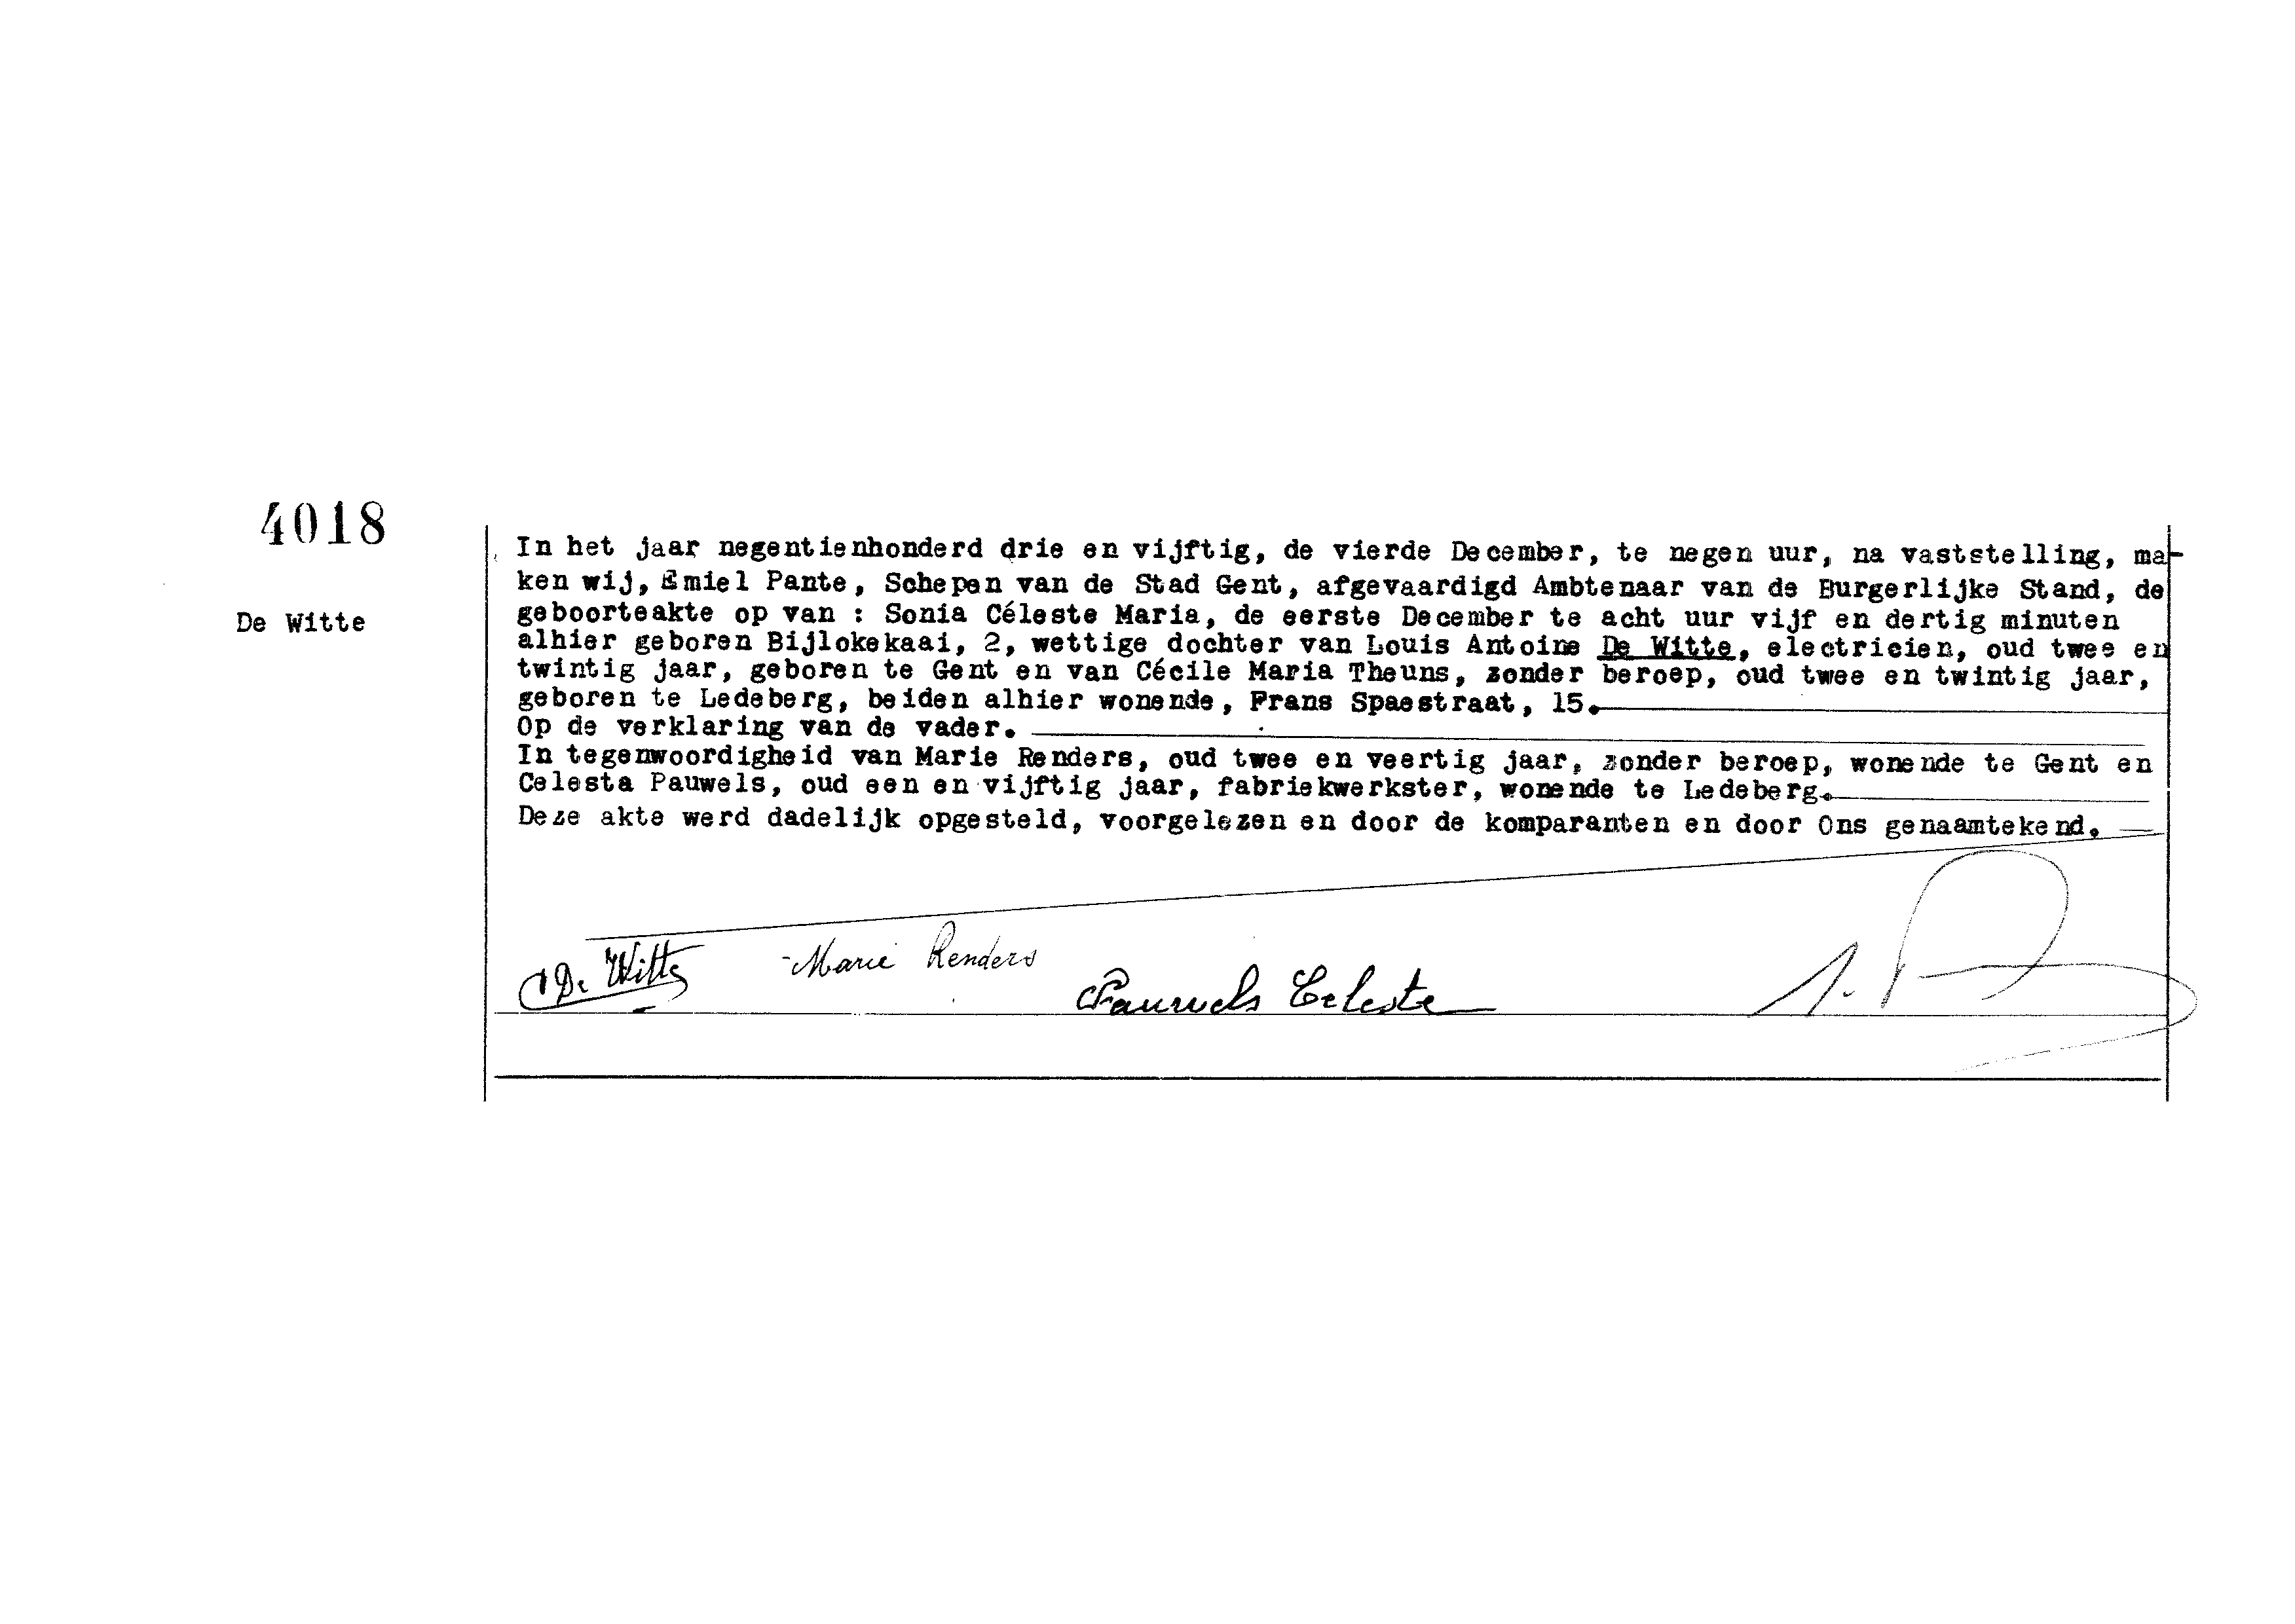 4018
De Witte
In het jaar negentienhonderd drie en vijftig, de vierde December, te negen uur, na vaststelling, ma-
ken wij, Emiel Pante, Schepen van de Stad Gent, afgevaardigd Ambtenaar van de Burgerlijke Stand, de
geboorteakte op van : Sonia Céleste Maria, de eerste December te acht uur vijf en dertig minuten
alhier geboren Bijlokekaai, 2, wettige dochter van Louis Antoine De Witte, electricien, oud twee en
twintig jaar, geboren te Gent en van Cécile Maria Theuns, zonder beroep, oud twee en twintig jaar,
geboren te Ledeberg, beiden alhier wonende, Frans Spaestraat, 15.
Op de verklaring van de vader.
In tegenwoordigheid van Marie Renders, oud twee en veertig jaar, zonder beroep, wonende te Gent en
Celesta Pauwels, oud een en vijftig jaar, fabriekwerkster, wonende te Ledeberg.
Deze akte werd dadelijk opgesteld, voorgelezen en door de komparanten en door Ons genaamtekend.
De Witte Marie Renders
Pauwels Celeste